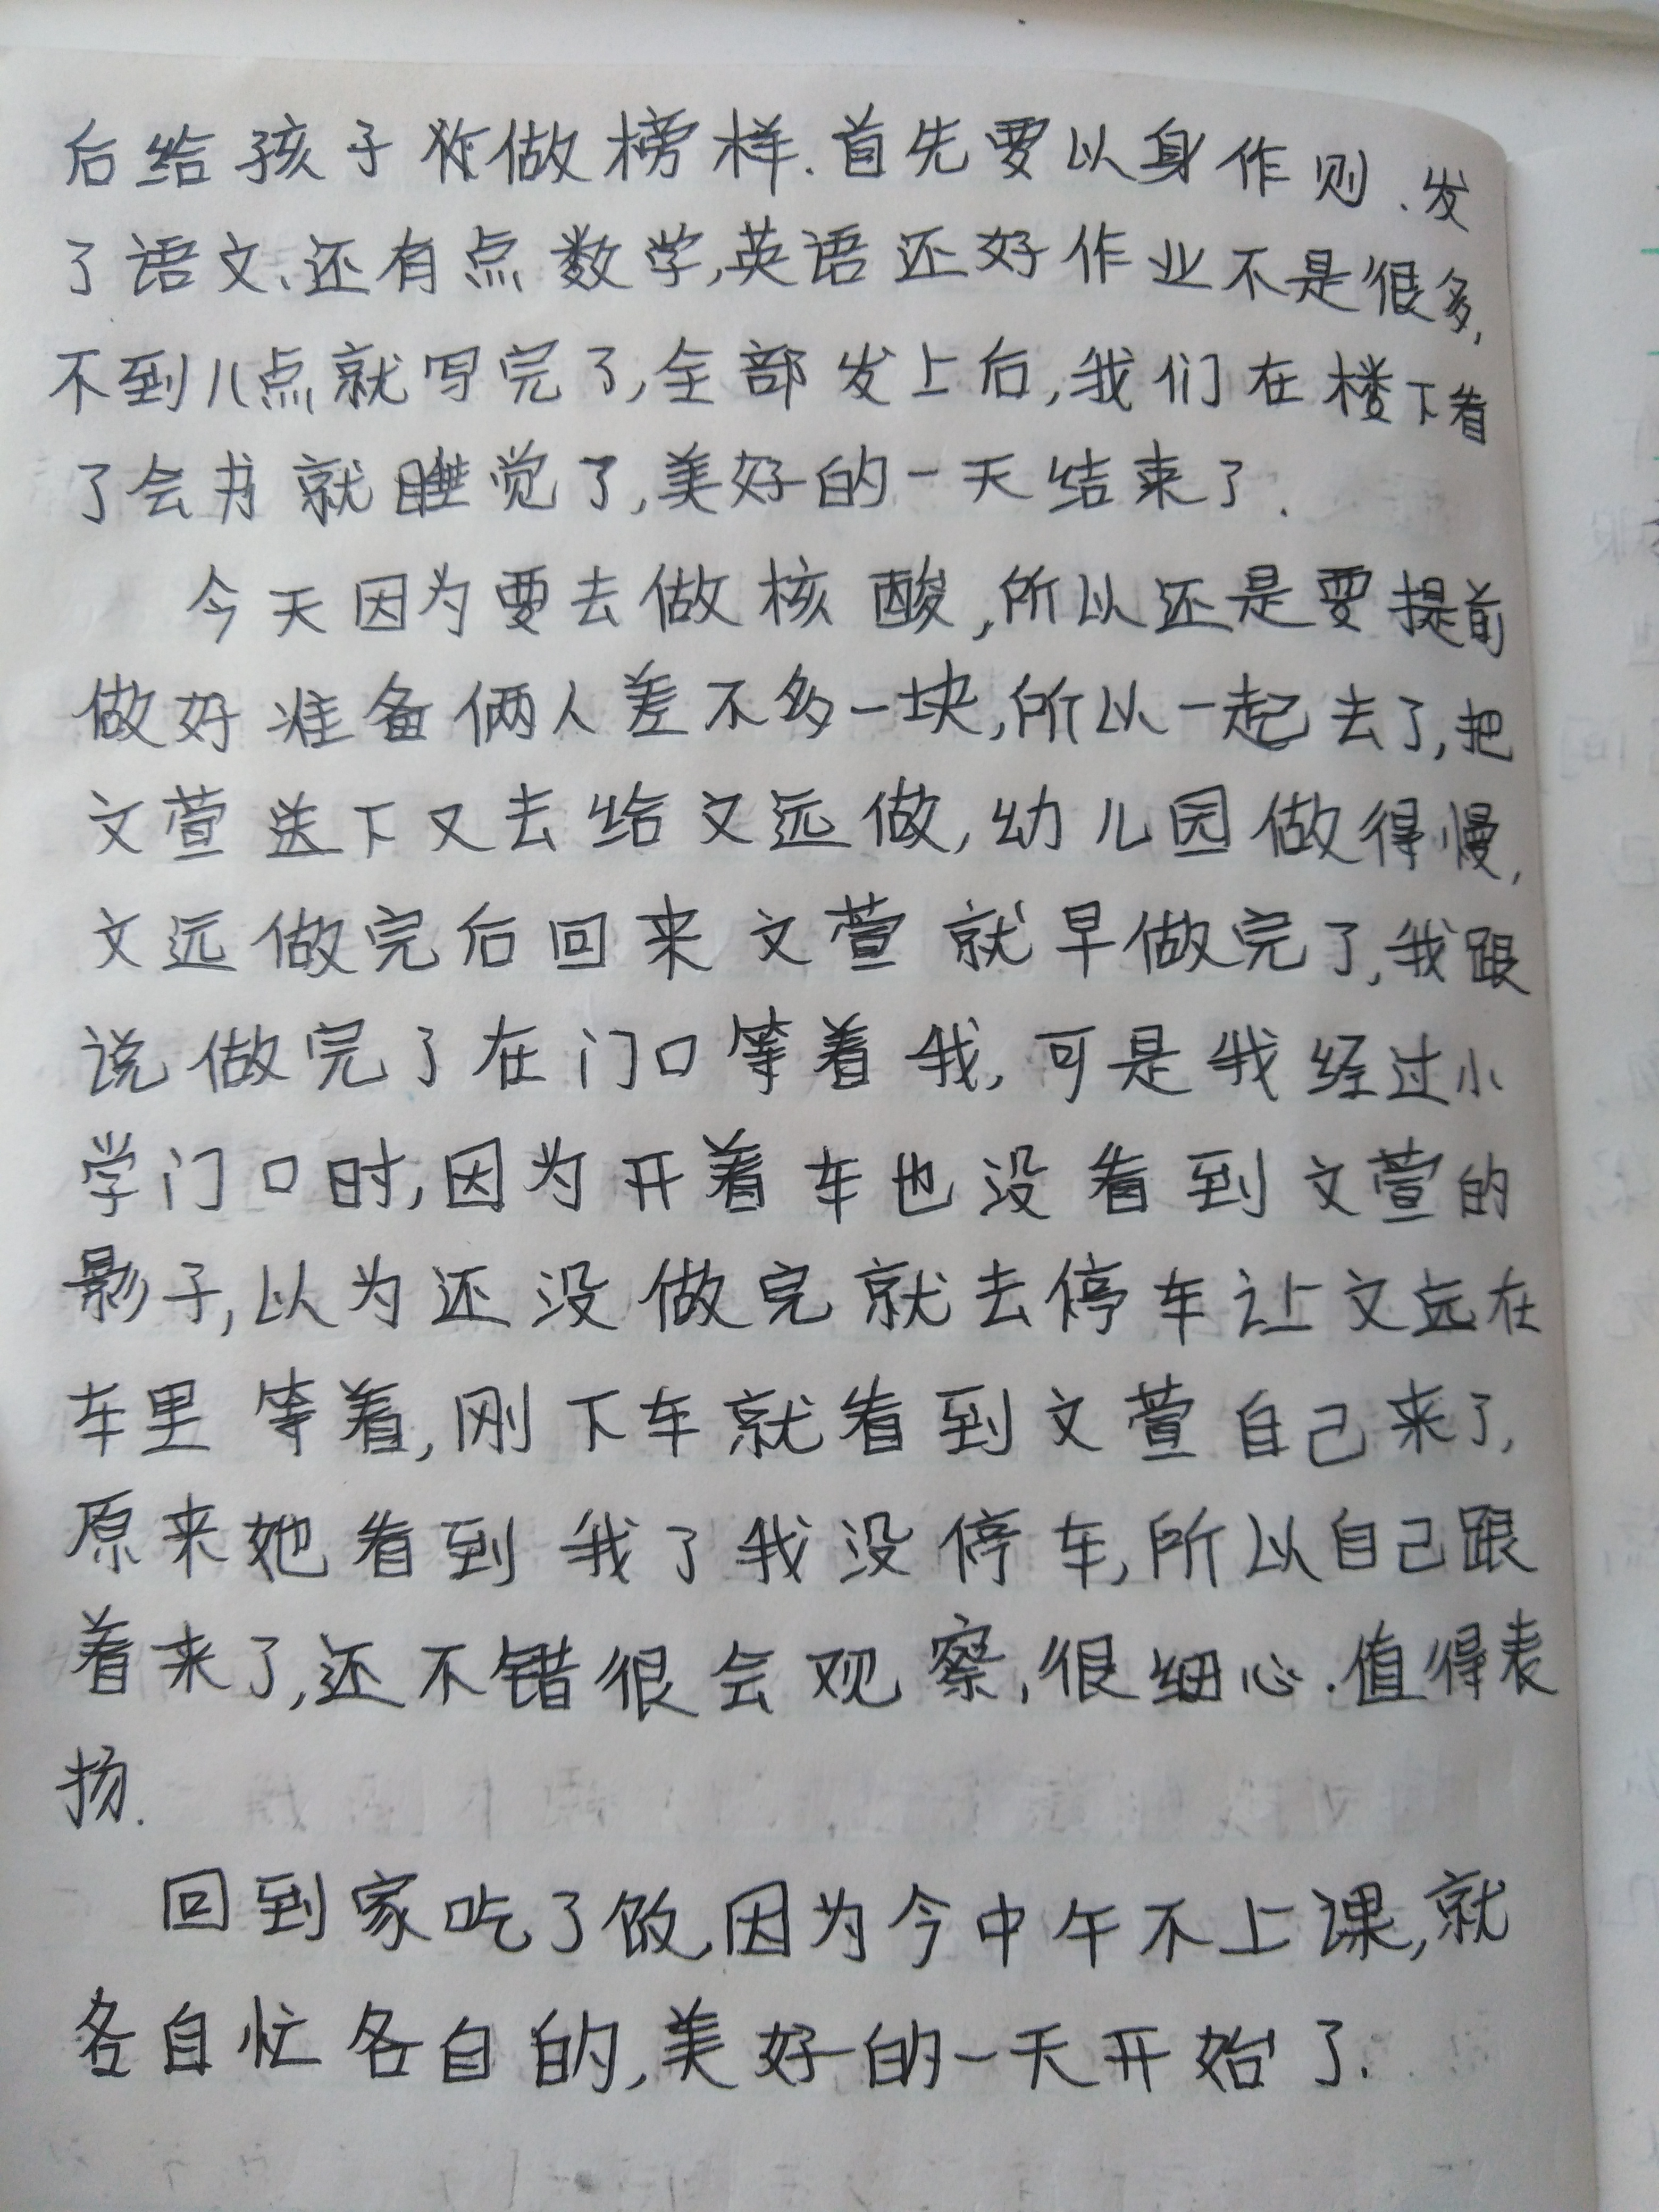 后给孩子做榜样.首先要以身作则.发
了语文、还有点数学,英语还好作业不是很多,
不到八点就写完了,全部发上后,我们在楼下看
了会书就睡觉了,美好的一天结束了.
今天因为要去做核酸,所以还是要提前
做好准备俩人差不多一块,所以一起去了,把
文萱送下又去给文远做,幼儿园做得慢,
文远做完后回来文萱就早做完了,我跟
说做完了在门口等着我,可是我经过小
学门口时,因为开着车也没看到文萱的
影子,以为还没做完就去停车让文远在
车里等着,刚下车就看到文萱自己来了,
原来她看到我了我没停车,所以自己跟
着来了,还不错很会观察,很细心.值得表
扬.
回到家吃了饭,因为今中午不上课,就
各自忙各自的,美好的一天开始了.